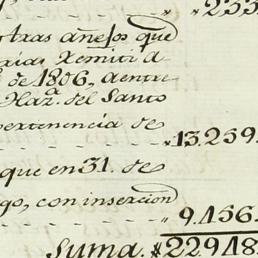 233
otras anejos que
rias Remiti a-
de 1806, a entre
Haz.ª del Santo
pertenencia de
13.259
que en 31. de
go, con insercion
9.456.
Suma. 22918